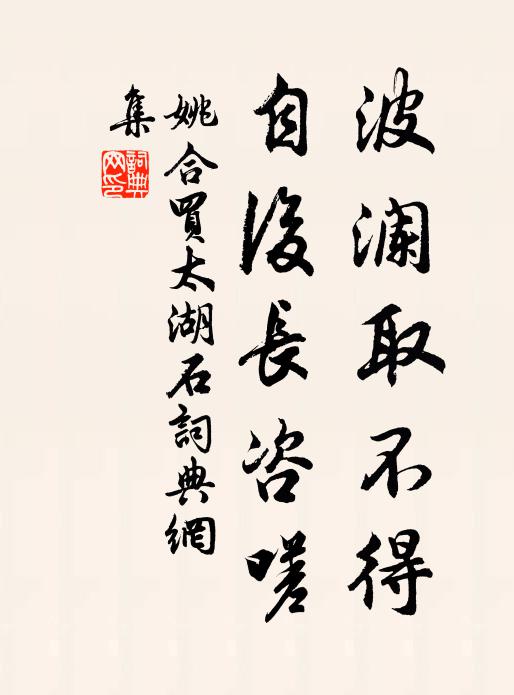 波澜取不得
自後長咨嗟
姚合買太湖石詞典網
集
詞典網印